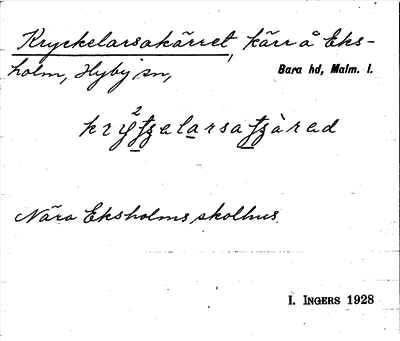 Kryckelarsakärret, kärr å Eks-
holm, Hyby sn, Bara hd, Malm. l.
Nära Eksholms skolhus.
I. INGERS 1928